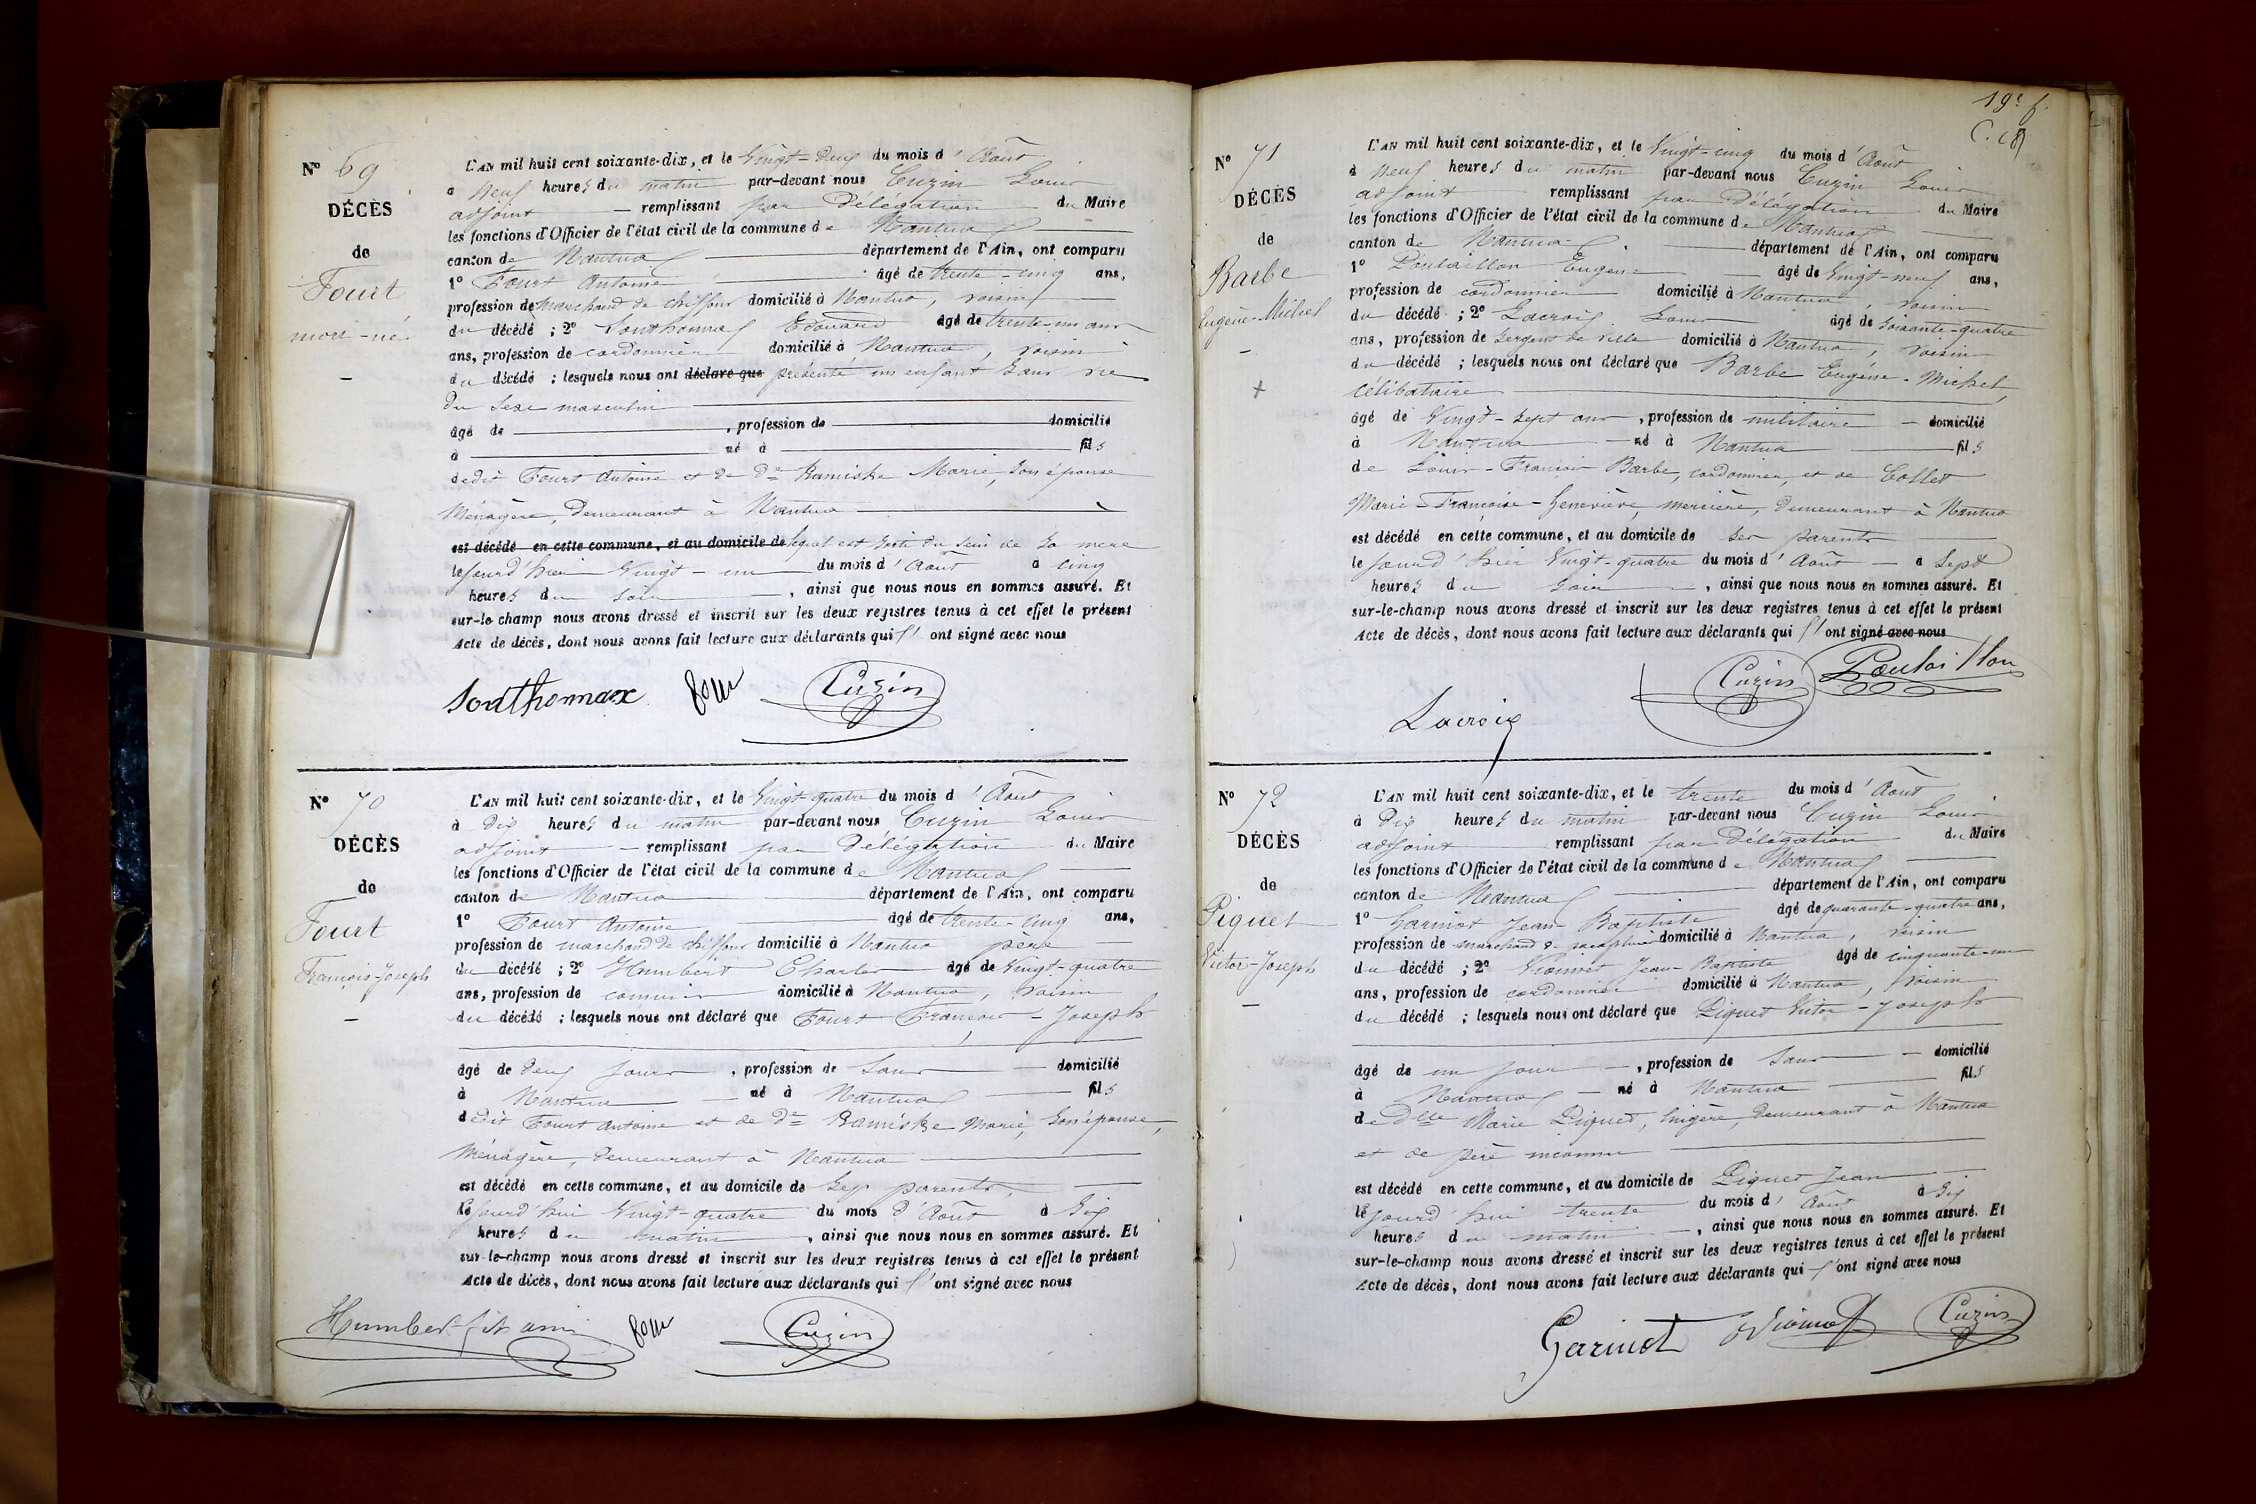 N° 69
DÉCÈS
de
Fourt
mort-né
L'AN mil huit cent soixante-dix, et le Vingt-deux du mois d'Août
à neuf heures du matin par-devant nous Cuzin Louis
adjoint remplissant par Délégation du Maire
les fonctions d'Officier de l'état civil de la commune de Nantua
canton de Nantua département de l'Ain, ont comparu
1° Fourt Antoine âgé de trente-cinq ans,
profession de marchand de chiffons domicilié à Nantua, voisin
du décédé ; 2° Sonthonnax Edouard âgé de trente-un ans
ans, profession de cordonnier domicilié à Nantua, voisin
du décédé ; lesquels nous ont déclaré que présenté un enfant sans vie
du sexe masculin
âgé de , profession de domicilié
à né à fils
dedit Fourt Antoine et de De Ramiske Marie, son épouse
Ménagère, demeurant à Nantua
est décédé en cette commune, et au domicile de lequel est sorti du sein de sa mère
le jourd'hier Vingt-un du mois d'Août à cinq
heures du soir , ainsi que nous nous en sommes assuré. Et
sur-le-champ nous avons dressé et inscrit sur les deux registres tenus à cet effet le présent
Acte de décès, dont nous avons fait lecture aux déclarants qui l'ont signé avec nous
Sonthonnax Cuzin
N° 70
DÉCÈS
de
Fourt
François-Joseph
L'AN mil huit cent soixante-dix, et le Vingt-quatre du mois d'Août
à dix heures du matin par-devant nous Cuzin Louis
adjoint remplissant par Délégation du Maire
les fonctions d'Officier de l'état civil de la commune de Nantua
canton de Nantua département de l'Ain, ont comparu
1° Fourt Antoine âgé de trente-cinq ans,
profession de marchand de chiffons domicilié à Nantua père
du décédé ; 2° Humbert Charles âgé de Vingt-quatre
ans, profession de commis domicilié à Nantua, voisin
du décédé ; lesquels nous ont déclaré que Fourt François-Joseph
âgé de deux jours , profession de Sans domicilié
à Nantua né à Nantua fils
dedit Fourt Antoine et de De Ramiske Marie, son épouse,
Ménagère, demeurant à Nantua
est décédé en cette commune, et au domicile de ses parents,
le jourd'hui Vingt quatre du mois d'Août à Six
heures du matin , ainsi que nous nous en sommes assuré. Et
sur-le-champ nous avons dressé et inscrit sur les deux registres tenus à cet effet le présent
Acte de décès, dont nous avons fait lecture aux déclarants qui l'ont signé avec nous
Humbert Cuzin
19e f.
N° 71
DÉCÈS
de
Barbe
Eugène-Michel
+
L'AN mil huit cent soixante-dix, et le Vingt-cinq du mois d'Août
à neuf heures du matin par-devant nous Cuzin Louis
adjoint remplissant par Délégation du Maire
les fonctions d'Officier de l'état civil de la commune de Nantua
canton de Nantua département de l'Ain, ont comparu
1° Poulaillon Eugène âgé de Vingt-neuf ans,
profession de cordonnier domicilié à Nantua, voisin
du décédé ; 2° Lacroix Louis âgé de Soixante-quatre
ans, profession de Sergent de ville domicilié à Nantua, voisin
du décédé ; lesquels nous ont déclaré que Barbe Eugène-Michel,
Célibataire
âgé de Vingt-sept ans , profession de militaire domicilié
à Nantua né à Nantua fils
de Louis-François Barbe, cordonnier, et de Collet
Marie-Françoise-Geneviève mercière, demeurant à Nantua
est décédé en cette commune, et au domicile de ses parents
le jourd'hier Vingt-quatre du mois d'Août à Sept
heures du soir , ainsi que nous nous en sommes assuré. Et
sur-le-champ nous avons dressé et inscrit sur les deux registres tenus à cet effet le présent
Acte de décès, dont nous avons fait lecture aux déclarants qui l'ont signé avec nous
Cuzin Poulaillon
Lacroix
N° 72
DÉCÈS
de
Piquet
Victor-Joseph
L'AN mil huit cent soixante-dix, et le trente du mois d'Août
à Dix heures du matin par-devant nous Cuzin Louis
adjoint remplissant par Délégation du Maire
les fonctions d'Officier de l'état civil de la commune de Nantua
canton de Nantua département de l'Ain, ont comparu
1° Garinot Jean Baptiste âgé de quarante-quatre ans,
profession de marchand de parapluies domicilié à Nantua, voisin
du décédé ; 2° Jean-Baptiste âgé de cinquante-un
ans, profession de cordonnier domicilié à Nantua, voisin
du décédé ; lesquels nous ont déclaré que Piquet Victor-Joseph
âgé de un jour , profession de Sans domicilié
à Nantua né à Nantua fils
de Delle Marie Piquet, lingère, demeurant à Nantua
et de père inconnu
est décédé en cette commune, et au domicile de Piquet Jean
le jourd'hui trente du mois d'Août à Six
heures du matin , ainsi que nous nous en sommes assuré. Et
sur-le-champ nous avons dressé et inscrit sur les deux registres tenus à cet effet le présent
Acte de décès, dont nous avons fait lecture aux déclarants qui l'ont signé avec nous
Garinot Cuzin